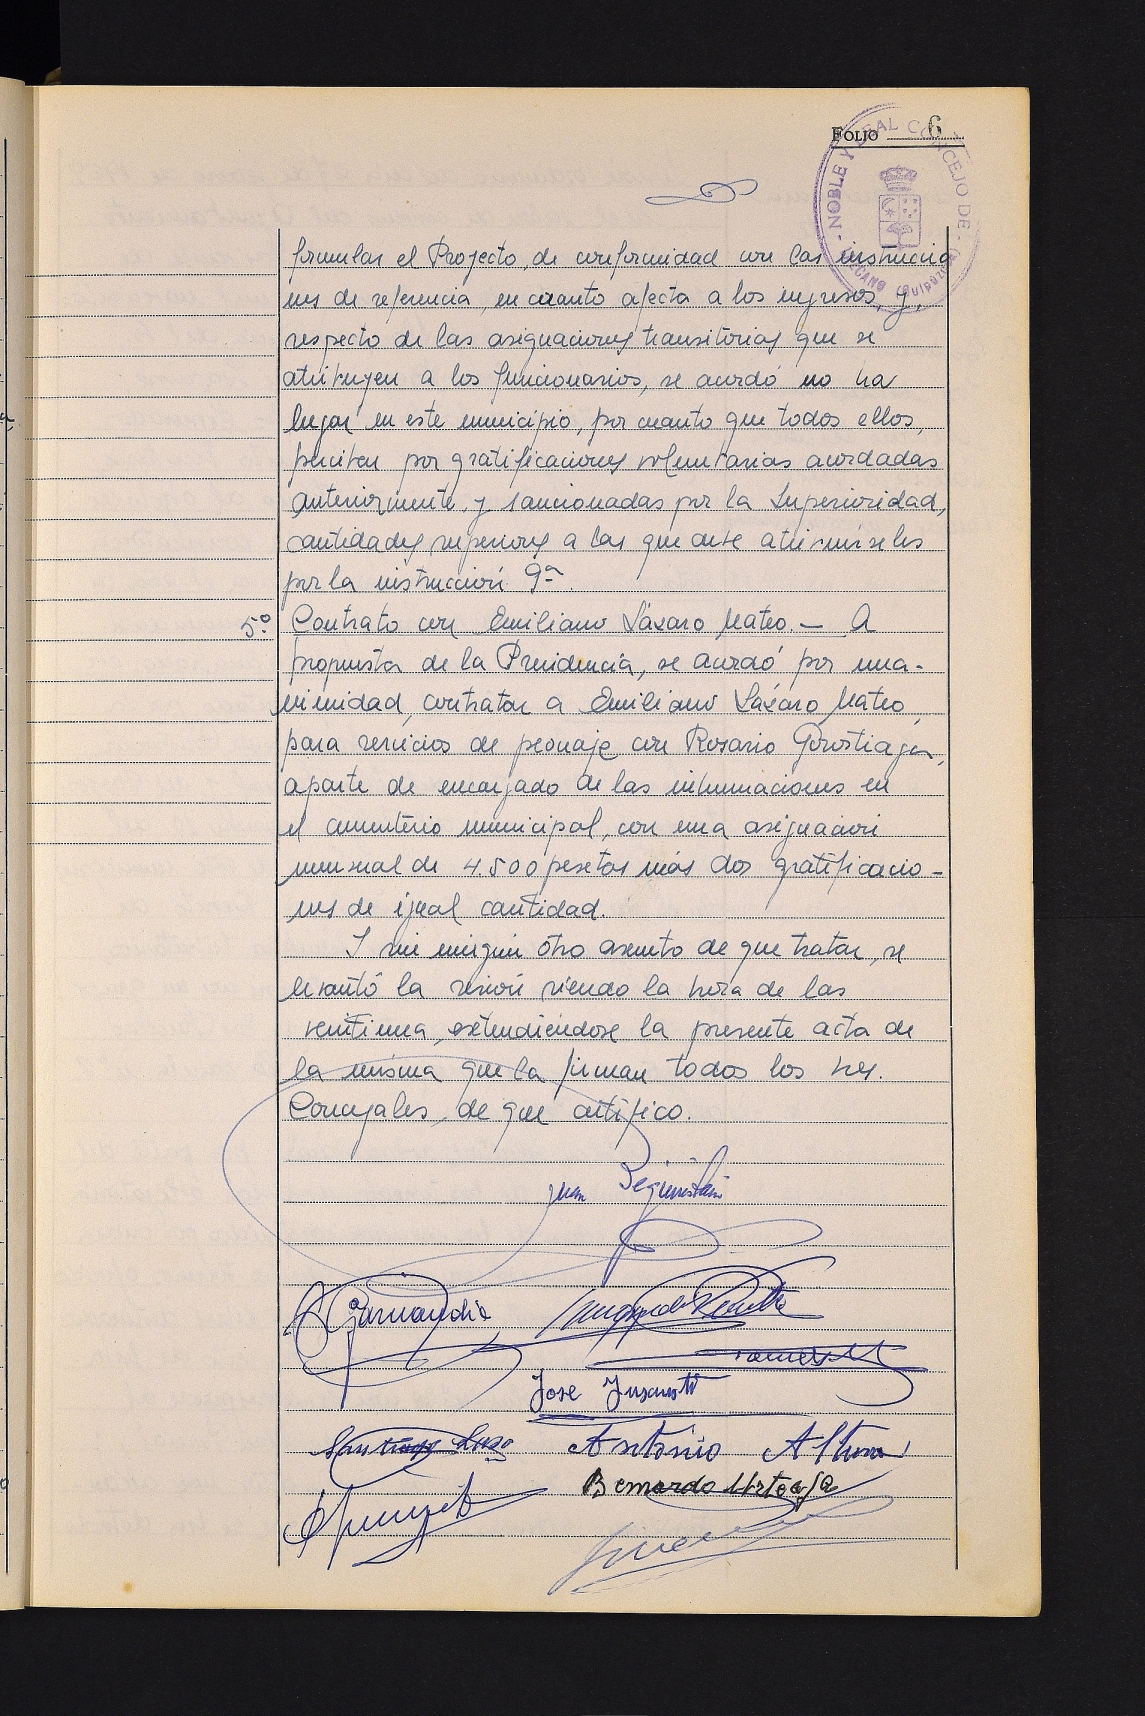 FOLIO 6
NOBLE Y LEAL CONCEJO DE - LEZCANO (Guipúzcoa) -
formular el Proyecto, de conformidad con las instruccio
nes de referencia, en cuanto afecta a los ingresos, y,
respecto de las asignaciones transitorias que se
atribuyen a los funcionarios, se acordó no ha
lugar en este municipio, por cuanto que todos ellos,
perciben por gratificaciones voluntarias acordadas
anteriormente y sancionadas por la Superioridad,
cantidades superiores a las que debe atribuírseles
por la instrucción 9ª
5.º Contrato con Emiliano Lázaro Mateo.— A
propuesta de la Presidencia, se acordó por una-
nimidad, contratar a Emiliano Lázaro Mateo,
para servicios de peonaje con Rosario Gorostiaga,
aparte de encargado de las inhumaciones en
el cementerio municipal, con una asignación
mensual de 4.500 pesetas más dos gratificacio-
nes de igual cantidad.
Y sin ningún otro asunto de que tratar, se
levantó la sesión siendo la hora de las
veintiuna, extendiéndose la presente acta de
la misma que la firman todos los Sres.
Concejales, de que certifico.
Juan Beguiristain
Garmendia
Jose
Santiago
Antonio
Bernardo Urteaga